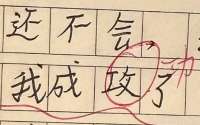 还不会,
我成攻了
功